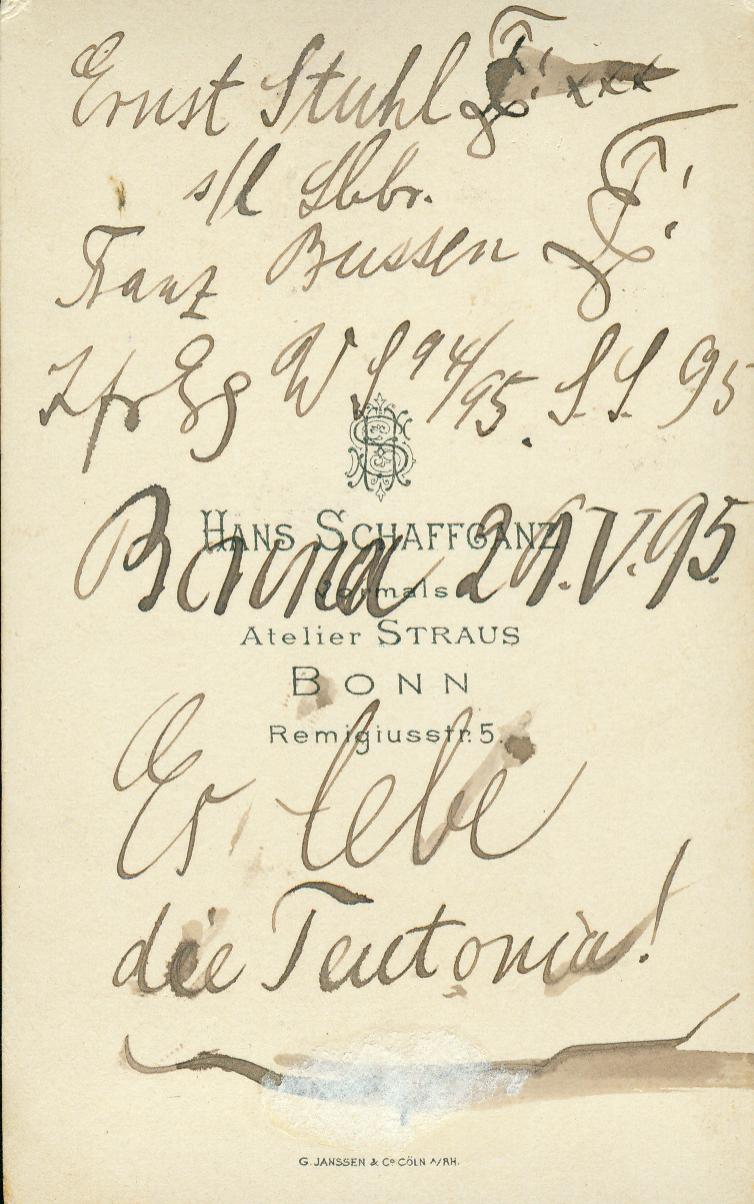 Ernst Stuhl T! xxx
s/l Lbbr.
Franz Bussen T!
Z. fr Eg W S 94/95. S.S. 95
HANS SCHAFFGANZ
Bonna 29.V.95.
vormals
Atelier STRAUS
BONN
Remigiusstr. 5.
Es lebe
die Teutonia!
G. JANSSEN & Co CÖLN A/RH.